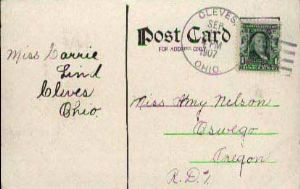 Miss Carrie
Lind
Cleves
Ohio.
Post Card
FOR ADDRESS ONLY
CLEVES,
SEP
PM
1907
OHIO
Miss Amy Nelson
Oswego
Oregon
R.D.1.